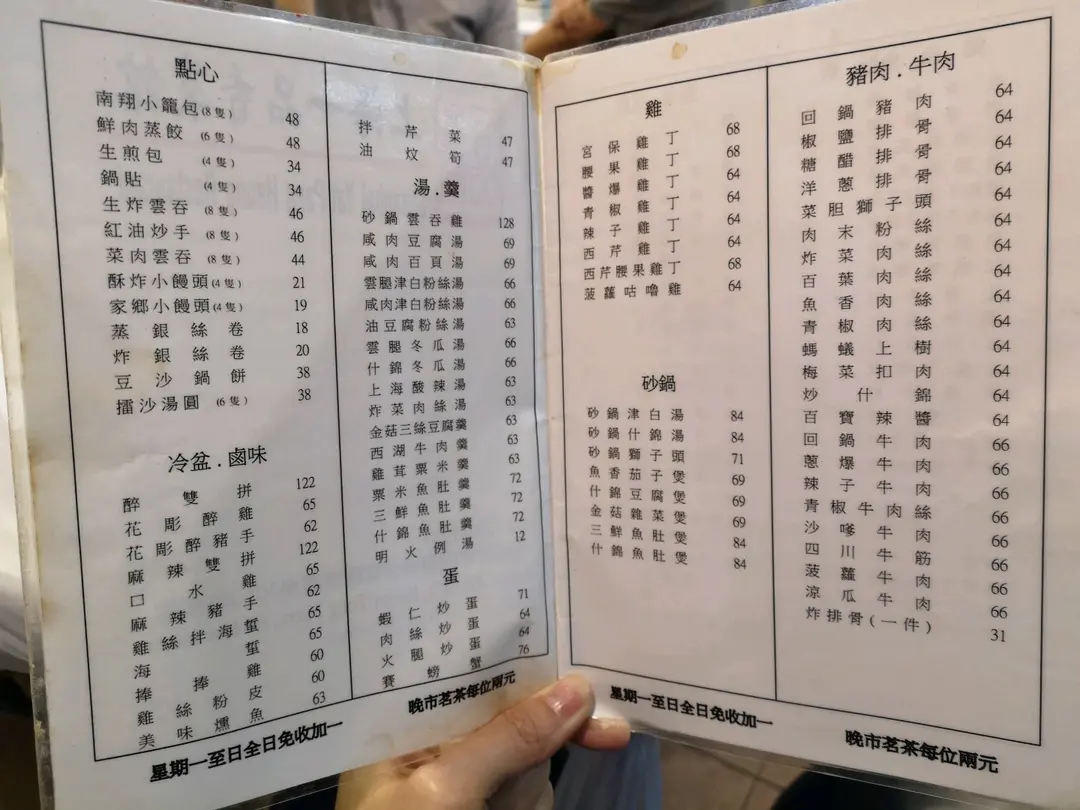 點心
南翔小籠包(8隻) 48
鮮肉蒸餃(6隻) 48
生煎包(4隻) 34
鍋貼(4隻) 34
生炸雲吞(8隻) 46
紅油炒手(8隻) 46
菜肉雲吞(8隻) 44
酥炸小饅頭(4隻) 21
家鄉小饅頭(4隻) 19
蒸銀絲卷 18
炸銀絲卷 20
豆沙鍋餅 38
擂沙湯圓(6隻) 38
冷盆.鹵味
醉雙拼 122
花彫醉雞 65
花彫醉豬手 62
麻辣雙拼 122
口水雞 65
麻辣豬手 62
雞絲拌海蜇 65
海蜇 65
捧捧雞 60
雞絲粉皮 60
美味燻魚 63
拌芹菜 47
油炆筍 47
湯.羹
砂鍋雲吞雞 128
咸肉豆腐湯 69
咸肉百頁湯 69
雲腿津白粉絲湯 66
咸肉津白粉絲湯 66
油豆腐粉絲湯 63
雲腿冬瓜湯 66
什錦冬瓜湯 66
上海酸辣湯 63
炸菜肉絲湯 63
金菇三絲豆腐羹 63
西湖牛肉羹 63
雞茸粟米羹 63
粟米魚肚羹 72
三鮮魚肚羹 72
什錦魚肚羹 72
明火例湯 12
蛋
蝦仁炒蛋 71
肉絲炒蛋 64
火腿炒蛋 64
賽螃蟹 76
星期一至日全日免收加一
晚市茗茶每位兩元
雞
宮保雞丁 68
腰果雞丁 68
醬爆雞丁 64
青椒雞丁 64
辣子雞丁 64
西芹雞丁 64
西芹腰果雞丁 68
菠蘿咕嚕雞 64
砂鍋
砂鍋津白湯 84
砂鍋什錦湯 84
砂鍋獅子頭 71
魚香茄子煲 69
什錦豆腐煲 69
金菇雜菜煲 69
三鮮魚肚煲 84
什錦魚肚煲 84
豬肉.牛肉
回鍋豬肉 64
椒鹽排骨 64
糖醋排骨 64
洋蔥排骨 64
菜胆獅子頭 64
肉末粉絲 64
炸菜肉絲 64
百葉肉絲 64
魚香肉絲 64
青椒肉絲 64
螞蟻上樹 64
梅菜扣肉 64
炒什錦 64
百寶辣醬 64
回鍋牛肉 66
蔥爆牛肉 66
辣子牛肉 66
青椒牛肉絲 66
沙嗲牛肉 66
四川牛筋 66
菠蘿牛肉 66
涼瓜牛肉 66
炸排骨(一件) 31
星期一至日全日免收加一
晚市茗茶每位兩元